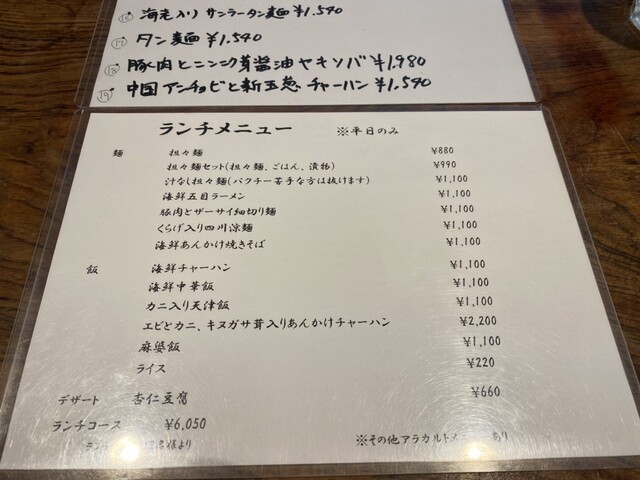 ⑯ 海老入り サンラータン麺 ¥1,540
⑰ タン麺 ¥1,540
⑱ 豚肉とニンニク芽醤油ヤキソバ ¥1,980
⑲ 中国アンチョビと新玉葱 チャーハン ¥1,540
ランチメニュー ※平日のみ
麺 担々麺 ¥880
担々麺セット(担々麺、ごはん、漬物) ¥990
汁なし担々麺(パクチー苦手な方は抜けます) ¥1,100
海鮮五目ラーメン ¥1,100
豚肉とザーサイ細切り麺 ¥1,100
くらげ入り四川涼麺 ¥1,100
海鮮あんかけ焼きそば ¥1,100
飯 海鮮チャーハン ¥1,100
海鮮中華飯 ¥1,100
カニ入り天津飯 ¥1,100
エビとカニ、キヌガサ茸入りあんかけチャーハン ¥2,200
麻婆飯 ¥1,100
ライス ¥220
デザート 杏仁豆腐 ¥660
ランチコース ¥6,050
ラン 様より
※その他アラカルトメ あり